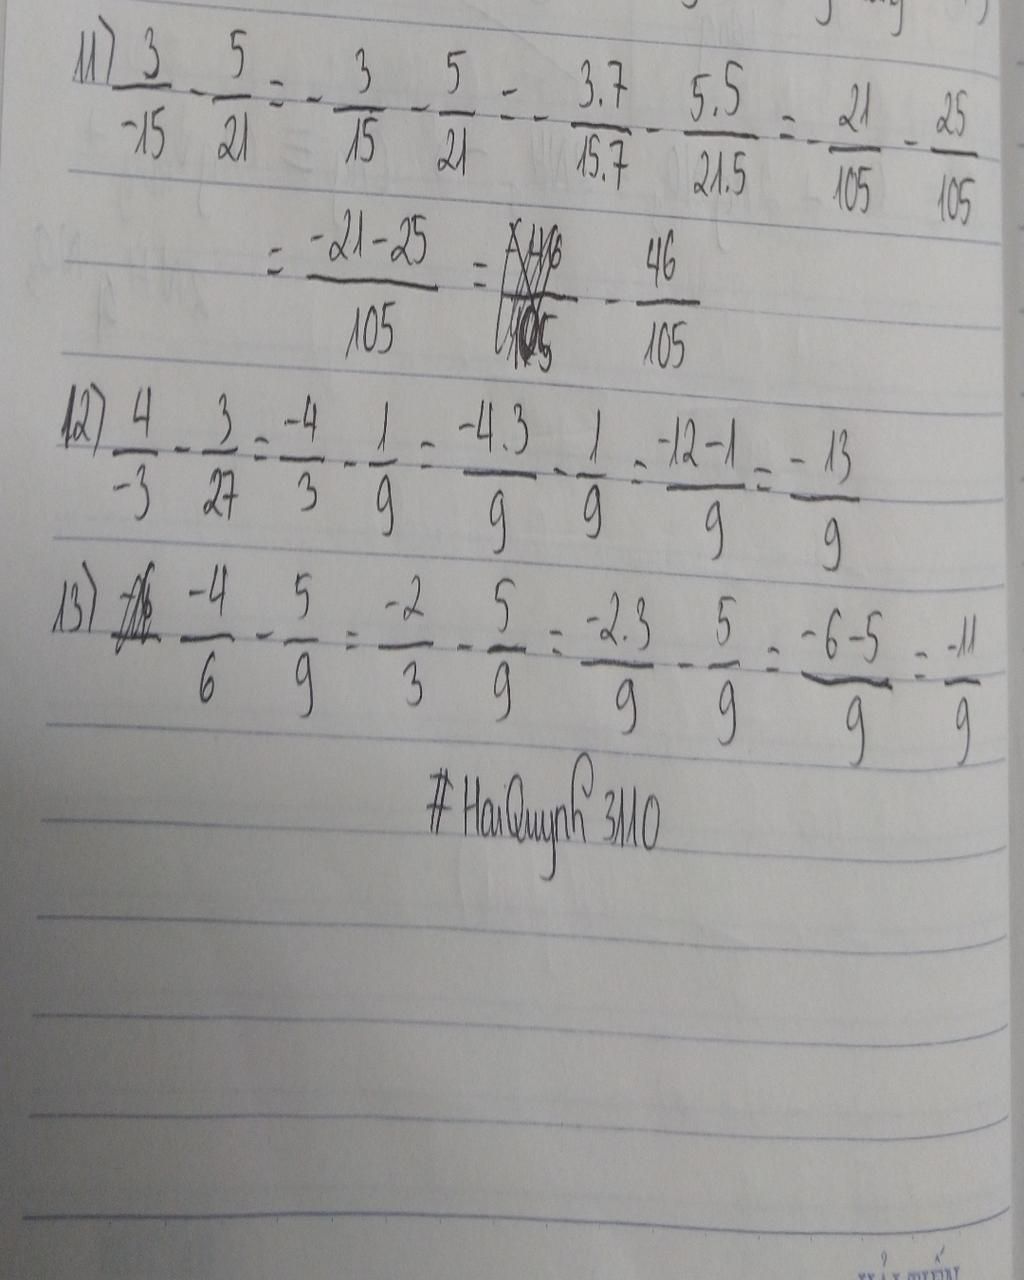 11) 3/-15 - 5/21 = - 3/15 - 5/21 = - 3.7/15.7 - 5.5/21.5 = - 21/105 - 25/105
= -21-25/105 = - 46/105
12) 4/-3 - 3/27 = -4/3 - 1/9 = -4.3/9 - 1/9 = -12-1/9 = - 13/9
13) -4/6 - 5/9 = -2/3 - 5/9 = -2.3/9 - 5/9 = -6-5/9 = -11/9
#HaiQuynh3110